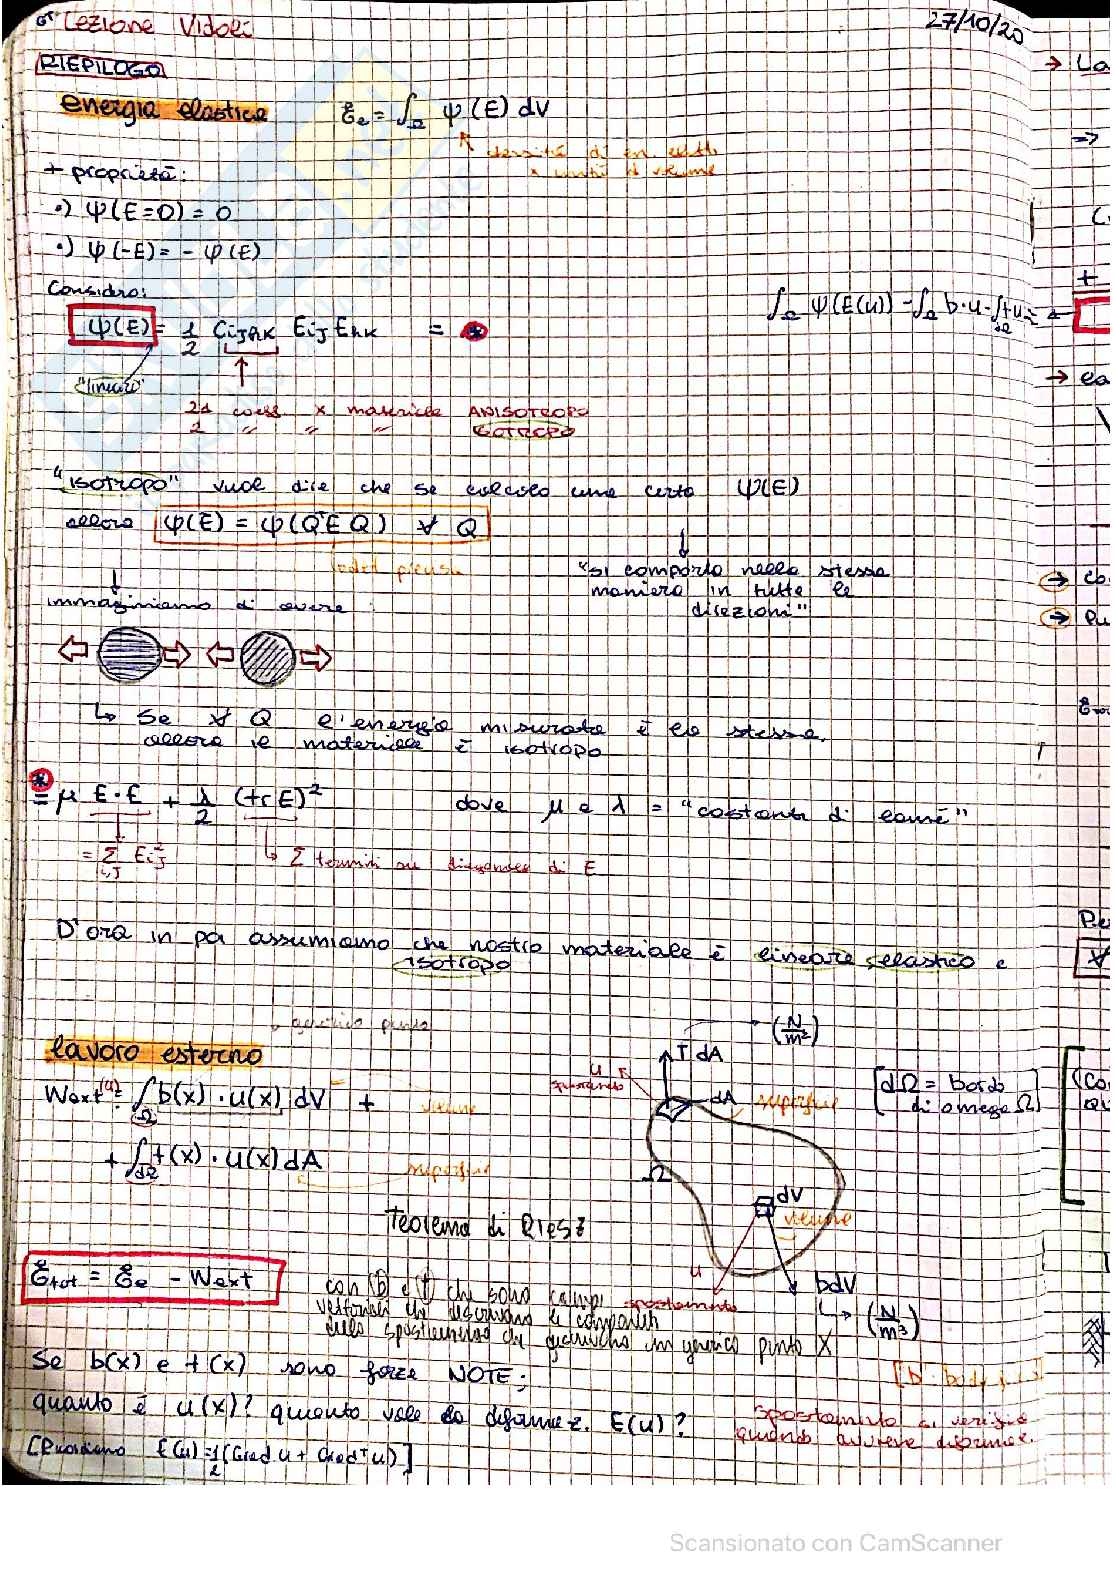 6ª Lezione Vidoli
27/10/20
RIEPILOGO
energia elastica ℰe = ∫Ω ψ(E) dV
densità di en. elast.
x unità di volume
+ proprietà:
•) ψ(E=0) = 0
•) ψ(-E) = - ψ(E)
Considero:
ψ(E) = 1/2 CijhK Eij EhK = *
∫Ω ψ(E(u)) - ∫Ω b·u - ∫∂Ω t·u =
"lineare"
21 coeff x materiale ANISOTROPO
2 " " " ISOTROPO
"isotropo" vuol dire che se calcolo una certa ψ(E)
allora ψ(E) = ψ(QᵀE Q) ∀ Q
"si comporta nella stessa
maniera in tutte le
direzioni"
immaginiamo di avere:
↳ Se ∀ Q l'energia misurata è la stessa,
allora il materiale è isotropo
* = μ E·E + λ/2 (tr E)² dove μ e λ = "costanti di Lamé"
= Σi,j Eij² ↳ Σ termini su diagonale di E
D'ora in poi assumiamo che nostro materiale è lineare elastico e
isotropo
generico punto
lavoro esterno
Wext(u) = ∫Ω b(x) · u(x) dV + volume
+ ∫∂Ω t(x) · u(x) dA superficie
T dA (N/m²)
u
spostamento
dA superficie
[∂Ω = bordo
di omega Ω]
Ω
dV
volume
u
spostamento
bdV
↳ (N/m³)
Teorema di Riesz
ℰtot = ℰe - Wext
con b e t che sono campi
vettoriali che descrivono le componenti
dello spostamento che in generico punto X
Se b(x) e t(x) sono forze NOTE;
[b: body
quanto è u(x)? quanto vale la deformaz. E(u)?
spostamento si verifica
quando avviene deformaz.
[Ricordiamo E(u) = 1/2 (Grad u + Gradᵀ u)]
Scansionato con CamScanner